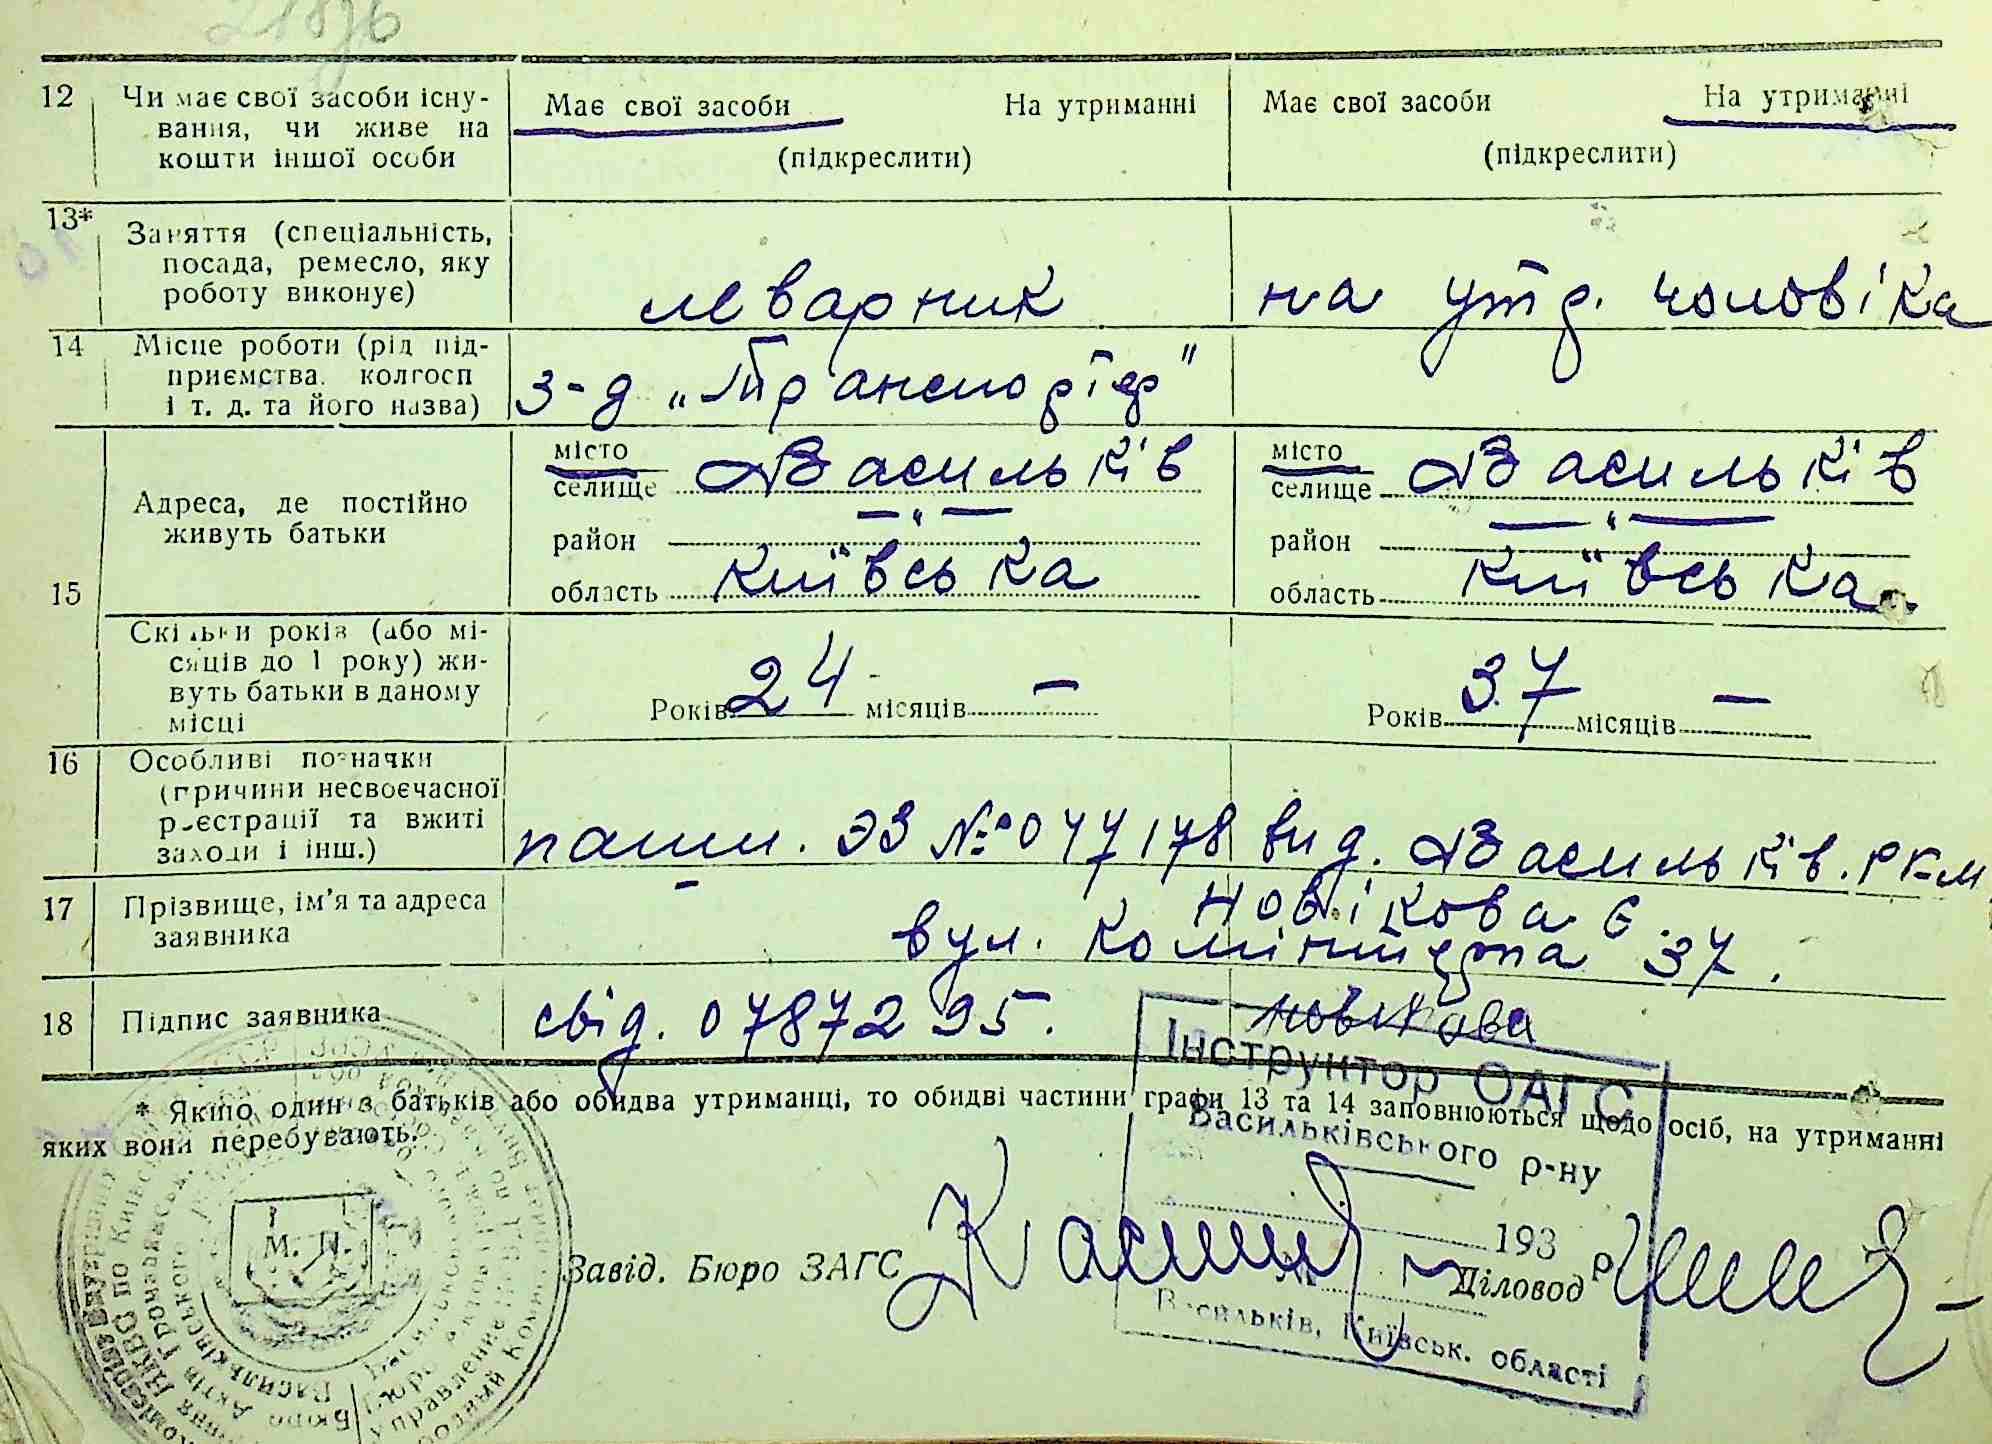 21876
12 Чи має свої засоби існу- Має свої засоби На утриманні Має свої засоби На утриманні
вання, чи живе на
кошти іншої особи (підкреслити) (підкреслити)
13* Заняття (спеціальність,
посада, ремесло, яку
роботу виконує) леварник на утр. чоловіка
14 Місце роботи (рід під-
приємства, колгосп з-д „Транспортер"
і т. д. та його назва)
місто Васильків місто Васильків
селище селище
Адреса, де постійно
живуть батьки район —„— район —„—
15 область Київська область Київська
Скільки років (або мі-
сяців до 1 року) жи-
вуть батьки в даному Років 24 місяців — Років 37 місяців —
місці
16 Особливі позначки
(причини несвоєчасної
реєстрації та вжиті
заходи і інш.) пашп. ЭЗ № 047178 вид. Васильків. РКМ
17 Прізвище, ім'я та адреса Новікова Є.
заявника вул. Комінтерна 37.
18 Підпис заявника свід. 0787295. Новікова
* Якщо один з батьків або обидва утриманці, то обидві частини графи 13 та 14 заповнюються щодо осіб, на утриманні
яких вони перебувають.
Інструктор ОАГС
Васильківського р-ну
193 р.
№
Васильків, Київськ. області
М. П.
Завід. Бюро ЗАГС Діловод